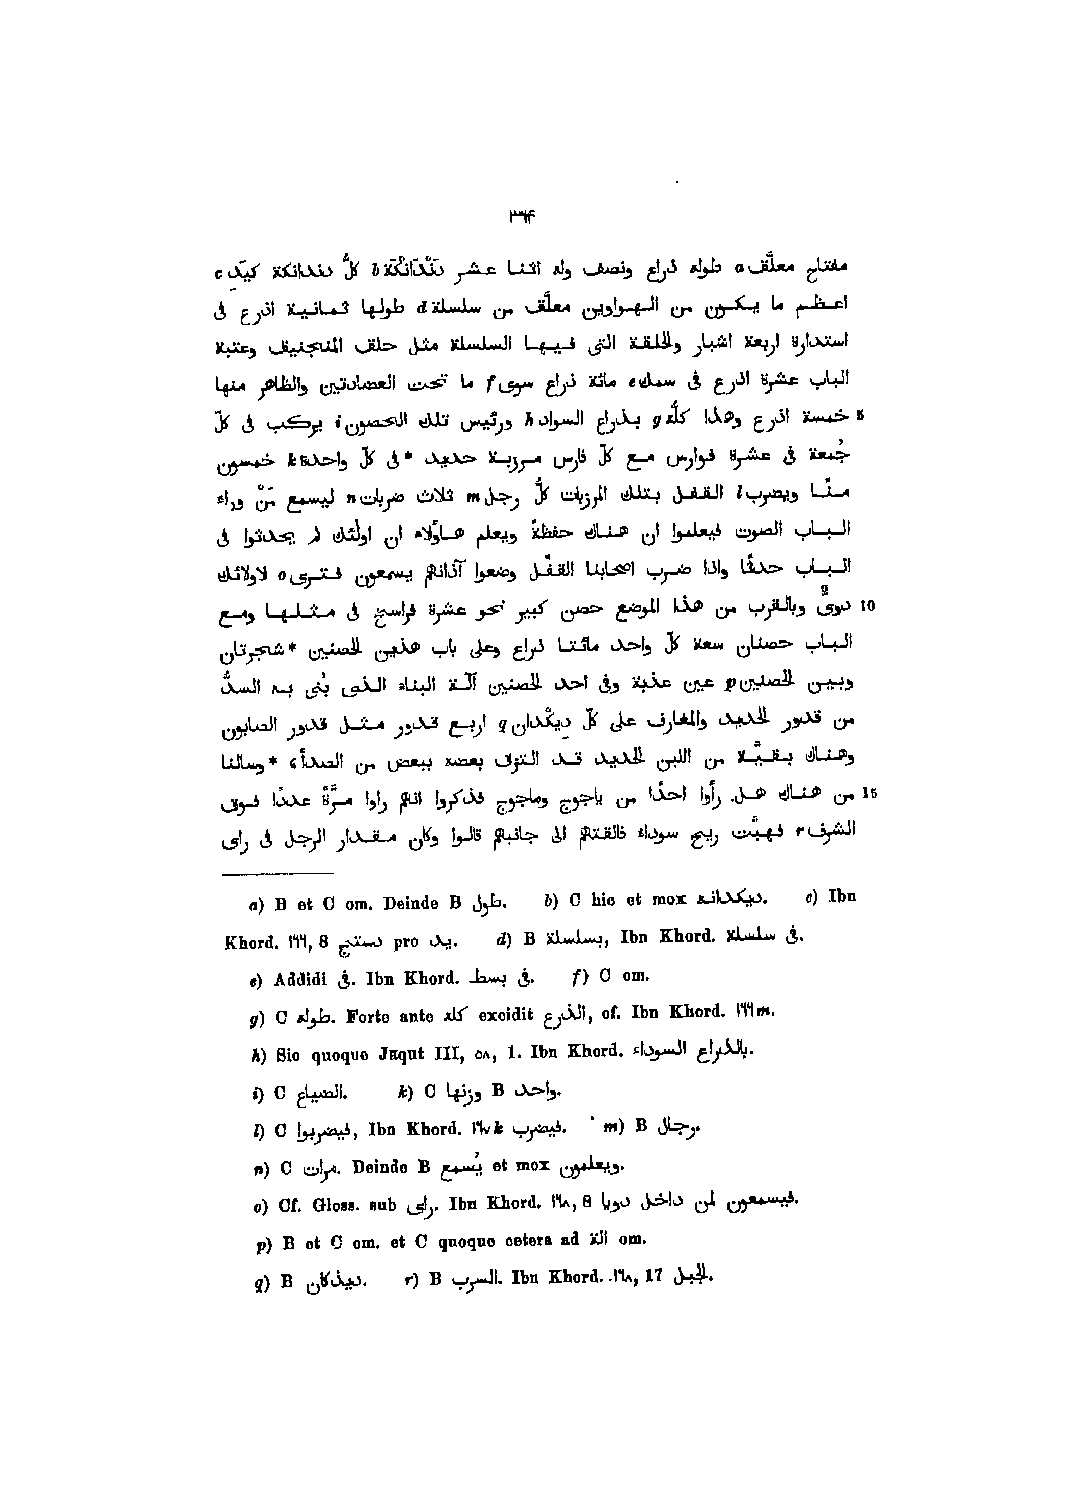 ٣٦٤
مفتاح معلّق a طوله ذراع ونصف وله اثنا عشر دَنْدَانْكَة b كلّ دندانكة كيَدِ c
اعظم ما يكون من الهواوين معلّق من سلسلة d طولها ثمانية اذرع فى
استدارة اربعة اشبار والحلقة التى فيها السلسلة مثل حلق المنجنيق وعتبة
الباب عشرة اذرع فى سمك e مائة ذراع سوى f ما تحت العضادتين والظاهر منها
5 خمسة اذرع وهذا كلّه g بذراع السواد h ورئيس تلك الحصون i يركب فى كلّ
جُمعة فى عشرة فوارس مع كلّ فارس مرزبة حديد *فى كلّ واحدة k خمسون
منًّا ويضرب l القفل بتلك المرزبات كلُّ رجل m ثلاث ضربات n ليسمع مَنْ وراء
الباب الصوت فيعلموا ان هناك حفظةً ويعلم هاؤلاء ان اولئك لم يحدثوا فى
الباب حدثًا واذا ضرب اصحابنا القفل وضعوا آذانهم يسمعون فترى o لاولائك
10 دوىّ وبالقرب من هذا الموضع حصن كبير نحو عشرة فراسخ فى مثلها ومع
الباب حصنان سعة كلّ واحد مائتا ذراع وعلى باب هذين الحصنين *شجرتان
وبين الحصنين p عين عذبة وفى احد الحصنين آلة البناء الذى بُنى به السدُّ
من قدور الحديد والمغارف على كلّ ديكْدان q اربع قدور مثل قدور الصابون
وهناك بقيّة من اللبن الحديد قد التزق بعضه ببعض من الصدأ، *وسالنا
15 من هناك هل رأوا احدًا من ياجوج وماجوج فذكروا انهم راوا مرّةً عددًا فوق
الشرف r فهبّت ريح سوداء فالقتهم الى جانبهم قالوا وكان مقدار الرجل فى راى
a) B et C om. Deinde B طول. b) C hic et mox ديكدانه. c) Ibn
Khord. ١٦٦, 8 دستج pro يد. d) B بسلسلة, Ibn Khord. فى سلسلة.
e) Addidi فى. Ibn Khord. فى بسط. f) C om.
g) C طوله. Forte ante كله excidit الذرع, cf. Ibn Khord. ١٦٦ m.
h) Sic quoque Jaqut III, ٥٨, 1. Ibn Khord. بالذراع السوداء.
i) C الضياع. k) C وزنها B واحد.
l) C فيضربوا, Ibn Khord. ١٦٧ k فيضرب. m) B رجال.
n) C مرات. Deinde B يُسمع et mox ويعلمون.
o) Cf. Gloss. sub راى. Ibn Khord. ١٦٨, 8 فيسمعون لمن داخل دويا.
p) B et C om. et C quoque cetera ad آلة om.
q) B ديذكان. r) B السرب. Ibn Khord. ١٦٨, 17 الجبل.